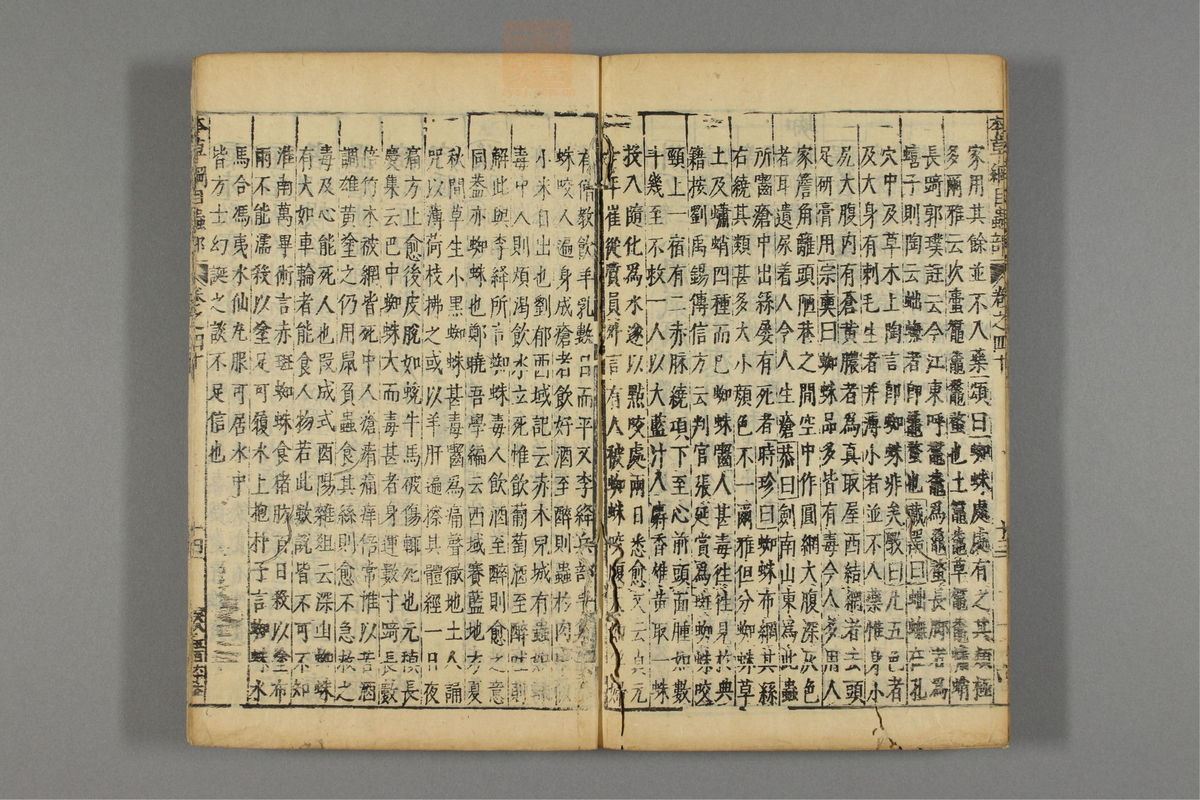 本草綱目蟲部 卷之四十
家用其餘並不入藥頌曰蜘蛛處處有之其類極
多爾雅云次蟗鼅鼄鼅蝥也土鼅鼄草鼅鼄蠨蛸
長踦郭璞註云今江東呼鼅鼄為鼄蝥長脚者為
蟢子則陶云蠨蛸者即鼄蝥也藏器曰在孔
穴中及草木上陶言即蜘蛛非矣斅曰凡五色者
及大身有刺毛生者并薄小者並不入藥惟身小
尻大腹内有蒼黄膿者為真取屋西結網者去頭
足研膏用宗奭曰蜘蛛品多皆有毒今人多用人
家簷角籬頭陋巷之間空中作圓網大腹深灰色
者耳遺尿着人令人生瘡恭曰劍南山東為此蟲
所齧瘡中出絲屢有死者時珍曰蜘蛛布網其絲
右繞其類甚多大小顔色不一爾雅但分蜘蛛草
土及蠨蛸四種而已蜘蛛齧人甚毒往往見於典
籍按劉禹錫傳信方云判官張延賞為斑蜘蛛咬
頸上一宿有二赤脉繞項下至心前頭面腫如數
斗幾至不救一人以大藍汁入麝香雄黄取一蛛
投入隨化為水遂以點咬處兩日悉愈又云貞元
十年崔從質員外言有人被蜘蛛咬腹
有僧教飲羊乳數日而平又李絳兵部手
蛛咬人遍身成瘡者飲好酒至醉則蟲於肉中似
小米自出也劉郁西域記云赤木兒城有蟲如蛛
毒中人則煩渴飲水立死惟飲葡萄酒至醉吐則
解此與李絳所言蜘蛛毒人飲酒至醉則愈之意
同蓋亦蜘蛛也鄭曉吾學編云西域賽藍地方夏
秋間草生小黑蜘蛛甚毒齧為痛聲徹地土人誦
咒以薄荷枝拂之或以羊肝遍擦其體經一日夜
痛方止愈後皮脫如蛻牛馬被傷輒死也元稹長
慶集云巴中蜘蛛大而毒甚者身運數寸踦長數
倍竹木被網皆死中人瘡痏痛痒倍常惟以苦酒
調雄黄塗之仍用鼠負蟲食其絲則愈不急救之
毒及心能死人也段成式酉陽雜俎云深山蜘蛛
有大如車輪者能食人物若此數說皆不可不知
淮南萬畢術言赤斑蜘蛛食猪肪百日殺以塗布
雨不能濡殺以塗足可履水上抱朴子言蜘蛛水
馬合馮夷水仙丸服可居水中
皆方士幻誕之談不足信也
本草綱目蟲部 卷之四十